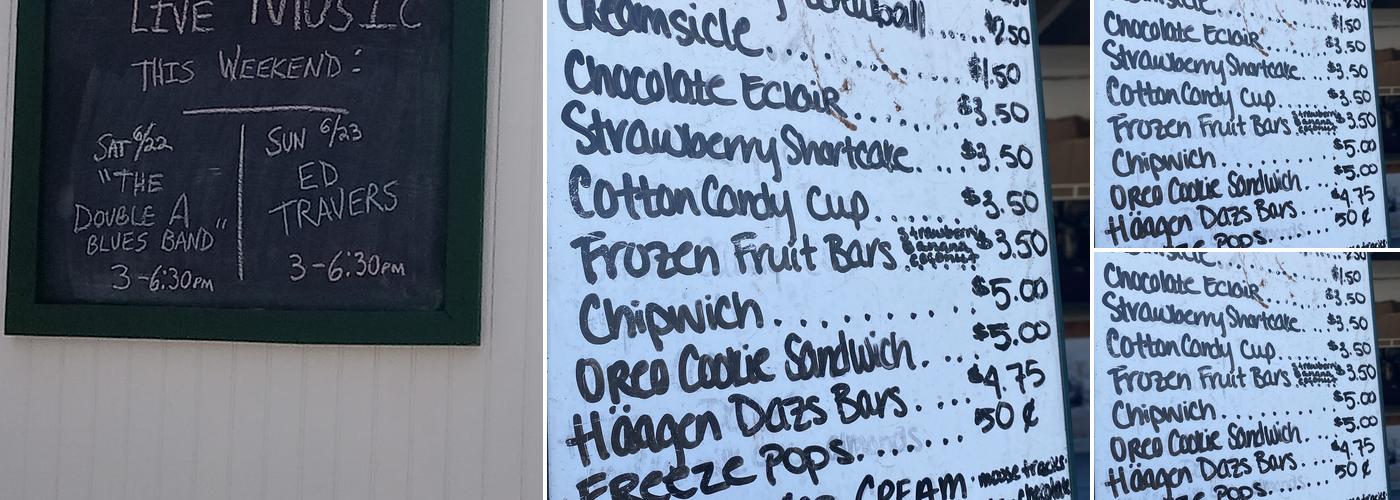 LIVE MUSIC
THIS WEEKEND:
SAT 6/22
"THE
DOUBLE A
BLUES BAND"
3-6:30PM
SUN 6/23
ED
TRAVERS
3-6:30PM
Screwball .... $2.50
Creamsicle........ $1.50
Chocolate Eclair........ $3.50
Strawberry Shortcake.... $3.50
Cotton Candy Cup....... $3.50
Frozen Fruit Bars strawberry banana coconut $3.50
Chipwich......... $5.00
Oreo Cookie Sandwich.... $5.00
Häagen Dazs Bars..... $4.75
FREEZE POPS....... 50¢
CREAM moose tracks
$1.50
Chocolate Eclair....... $3.50
Strawberry Shortcake... $3.50
Cotton Candy Cup....... $3.50
Frozen Fruit Bars strawberry banana coconut $3.50
Chipwich......... $5.00
Oreo Cookie Sandwich.... $5.00
Häagen Dazs Bars.... $4.75
FREEZE POPS..... 50¢
$1.50
Chocolate Eclair....... $3.50
Strawberry Shortcake... $3.50
Cotton Candy Cup....... $3.50
Frozen Fruit Bars strawberry banana coconut $3.50
Chipwich......... $5.00
Oreo Cookie Sandwich.... $5.00
Häagen Dazs Bars.... $4.75
FREEZE POPS..... 50¢